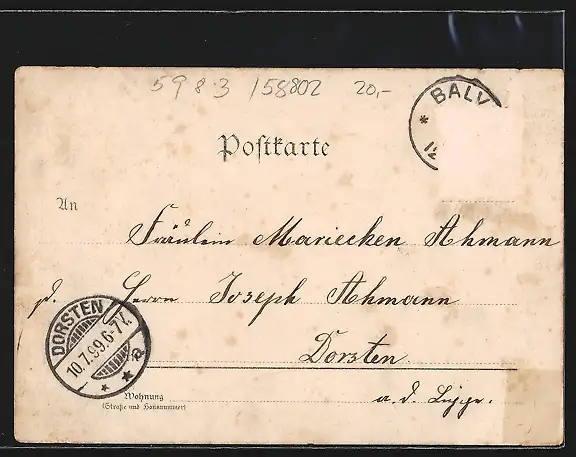 5983 /58802 20,-
BALV
12
Postkarte
An
Fräulein Mariechen Ahmann
p. Herrn Joseph Ahmann
DORSTEN
10.7.99.6-7V.
Dorsten
a. d. Lippe.
Wohnung
(Straße und Hausnummer)